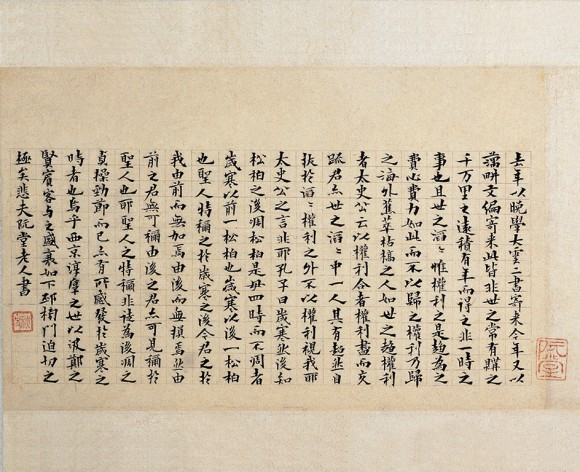 去年以晩學大雲二書寄來今年又以
藕畊文編寄來此皆非世之常有購之
千萬里之遠積有年而得之非一時之
事也且世之滔滔惟權利之是趨爲之
費心費力如此而不以歸之權利乃歸
之海外蕉萃枯槁之人如世之趨權利
者太史公云以權利合者權利盡而交
疏君亦世之滔滔中一人其有超然自
拔於滔滔權利之外不以權利視我耶
太史公之言非耶孔子曰歲寒然後知
松栢之後凋松栢是毌四時而不凋者
歲寒以前一松栢也歲寒以後一松栢
也聖人特稱之於歲寒之後今君之於
我由前而無加焉由後而無損焉然由
前之君無可稱由後之君亦可見稱於
聖人也耶聖人之特稱非徒爲後凋之
貞操勁節而已亦有所感發於歲寒之
時者也烏乎西京淳厚之世以汲鄭之
賢賓客與之盛衰如下邳榜門迫切之
極矣悲夫阮堂老人書
阮堂